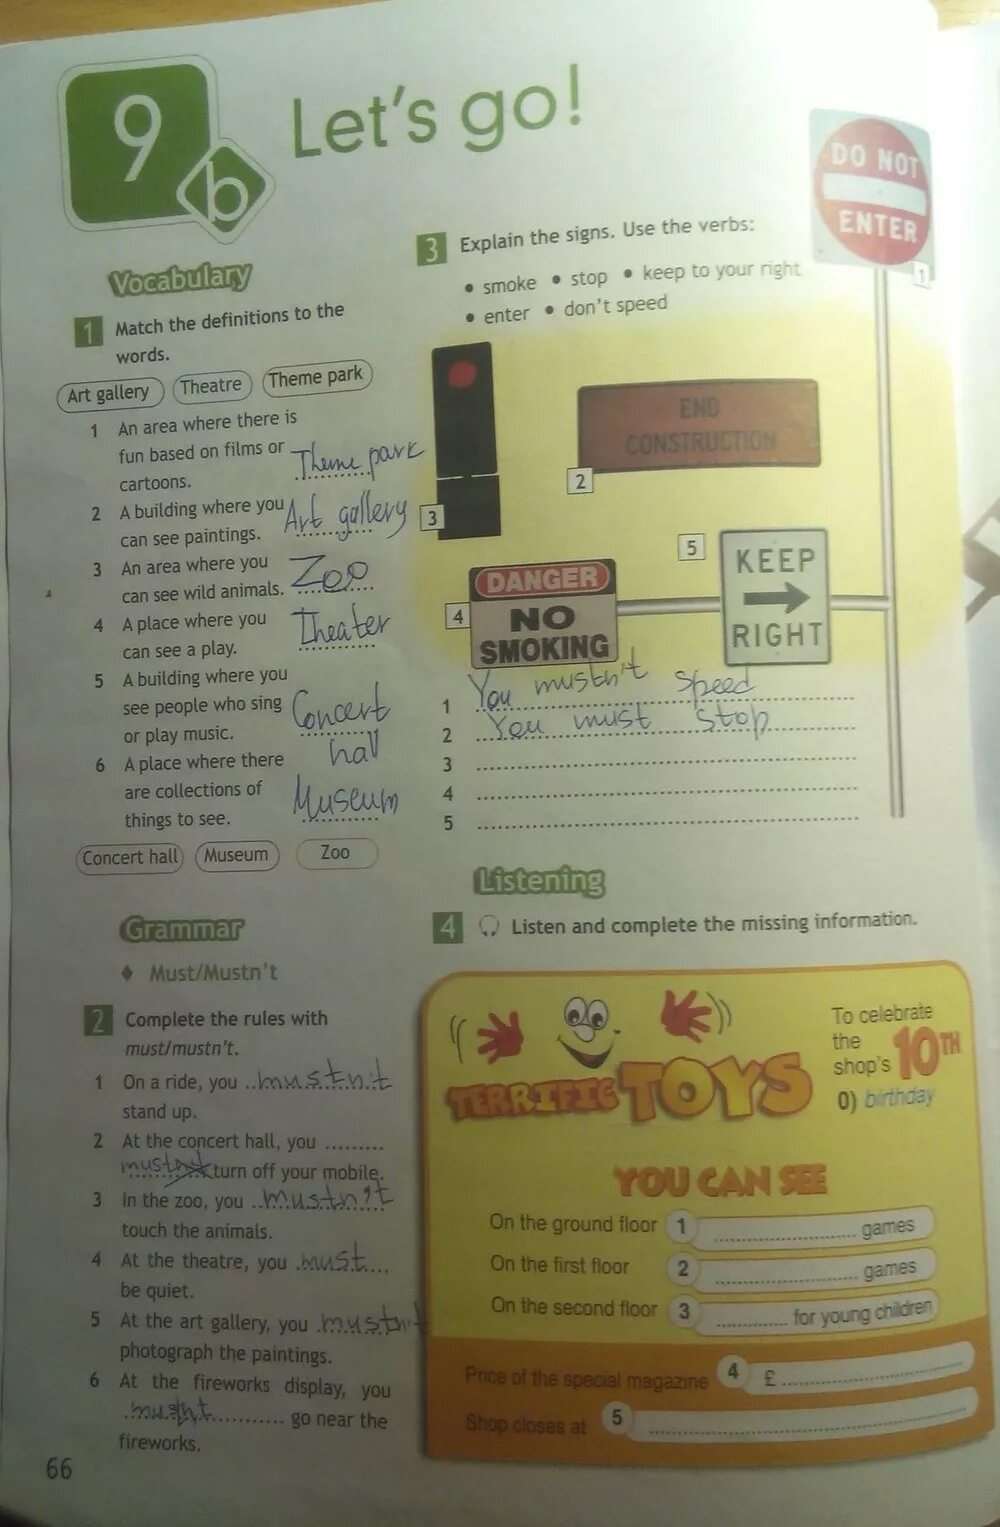 9
b
Let's go!
Vocabulary
1 Match the definitions to the
words.
Art gallery Theatre Theme park
1 An area where there is
fun based on films or Theme park
cartoons.
2 A building where you Art gallery
can see paintings.
3 An area where you Zoo
can see wild animals.
4 A place where you Theater
can see a play.
5 A building where you
see people who sing Concert
or play music. hall
6 A place where there
are collections of Museum
things to see.
Concert hall Museum Zoo
Grammar
Must/Mustn't
2 Complete the rules with
must/mustn't.
1 On a ride, you mustn't
stand up.
2 At the concert hall, you
must turn off your mobile.
3 In the zoo, you mustn't
touch the animals.
4 At the theatre, you must
be quiet.
5 At the art gallery, you mustn't
photograph the paintings.
6 At the fireworks display, you
go near the
fireworks.
66
3 Explain the signs. Use the verbs:
• smoke • stop • keep to your right
• enter • don't speed
DO NOT
ENTER
1
END
CONSTRUCTION
2
3
4
DANGER
NO
SMOKING
5
KEEP
RIGHT
1 You mustn't speed
2 You must stop
3
4
5
Listening
4 Listen and complete the missing information.
TERRIFIC TOYS
To celebrate
the
shop's 10TH
0) birthday
YOU CAN SEE
On the ground floor 1 games
On the first floor 2 games
On the second floor 3 for young children
Price of the special magazine 4 £
Shop closes at 5